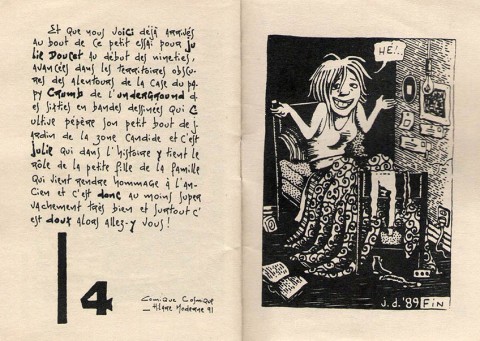 Et que nous voici déjà arrivés
au bout de ce petit essai pour Ju
lie Doucet au début des nineties,
avancées dans les territoires obscu
res des alentours de la case du pa
py Crumb de l'underground d
es sixties en bandes dessinées qui c
ultive pépère son petit bout de j
ardin de la zone Candide et c'est
Julie qui dans l'histoire y tient le
rôle de la petite fille de la famille
qui vient rendre hommage à l'An-
cien et c'est donc au moins super
vachement très bien et surtout c'
est doux alors allez-y vous!
4
Comique Cosmique
HÉ!..
j.d.'89 FIN